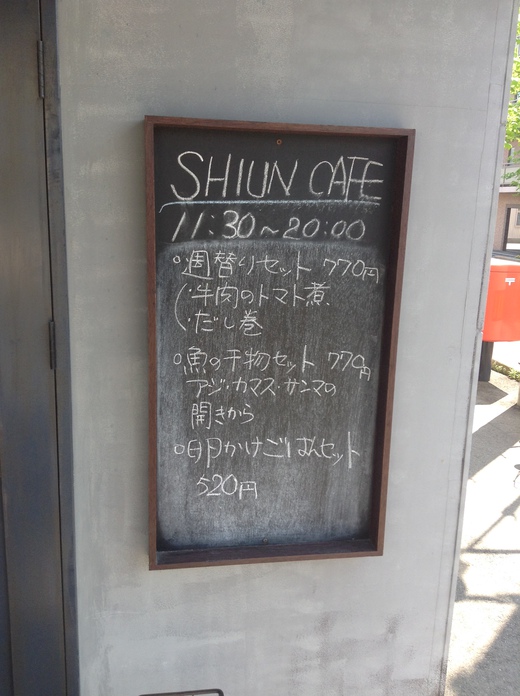 SHIUN CAFE
11:30~20:00
○週替りセット 770円
・牛肉のトマト煮
・だし巻
○魚の干物セット 770円
アジ・カマス・サンマの
開きから
○明月かけごはんセット
520円